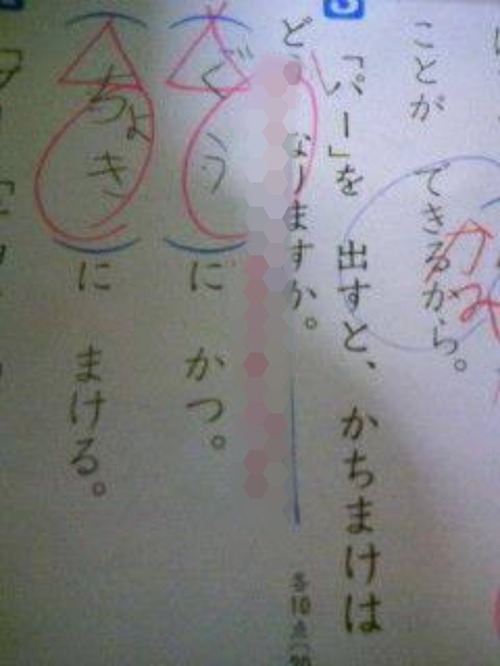 ことが できるから。
かみ
3
「パー」を 出すと、かちまけは
どうなりますか。
各10点
ぐう に かつ。
ちょき に まける。